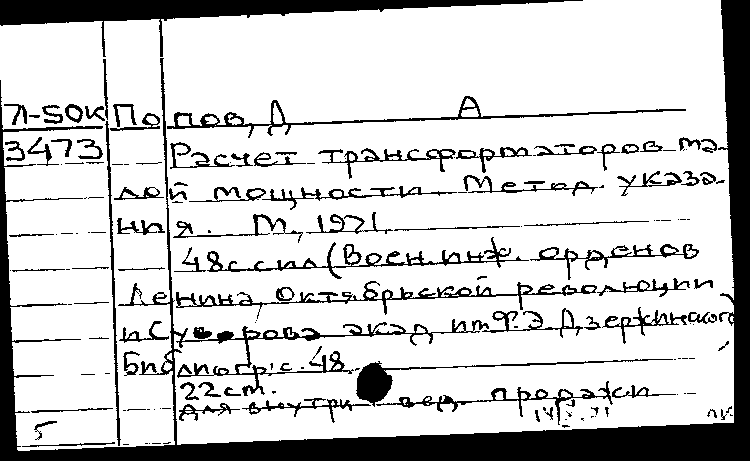 71-50К Попов, Д А
3473 Расчет трансформаторов ма-
лой мощности. Метод. указа-
ния. М., 1971.
48с с ил (Воен. инж. орденов
Ленина, Октябрьской революции
и Суворова акад им Ф.Э Дзержинского)
Библиогр: с. 48
22 cm.
Для внутри вед. продажи
5